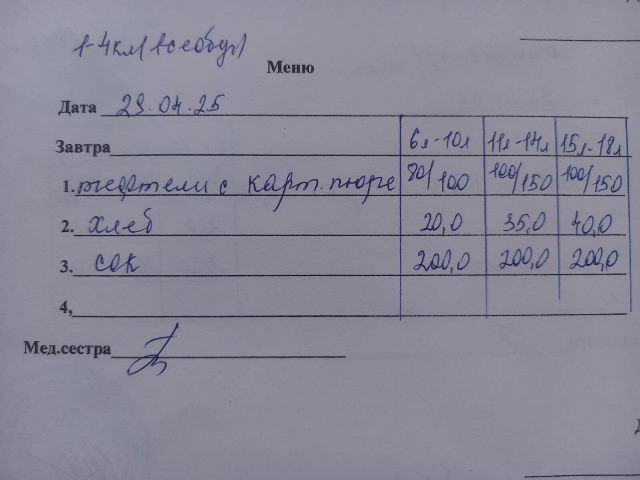 1-4кл (всеобуч)
Меню
Дата 29.04.25
Завтра 6л-10л 11л-14л 15л-18л
1. тефтели с карт. пюре 80/100 100/150 100/150
2. хлеб 20,0 35,0 40,0
3. сок 200,0 200,0 200,0
4,
Мед.сестра